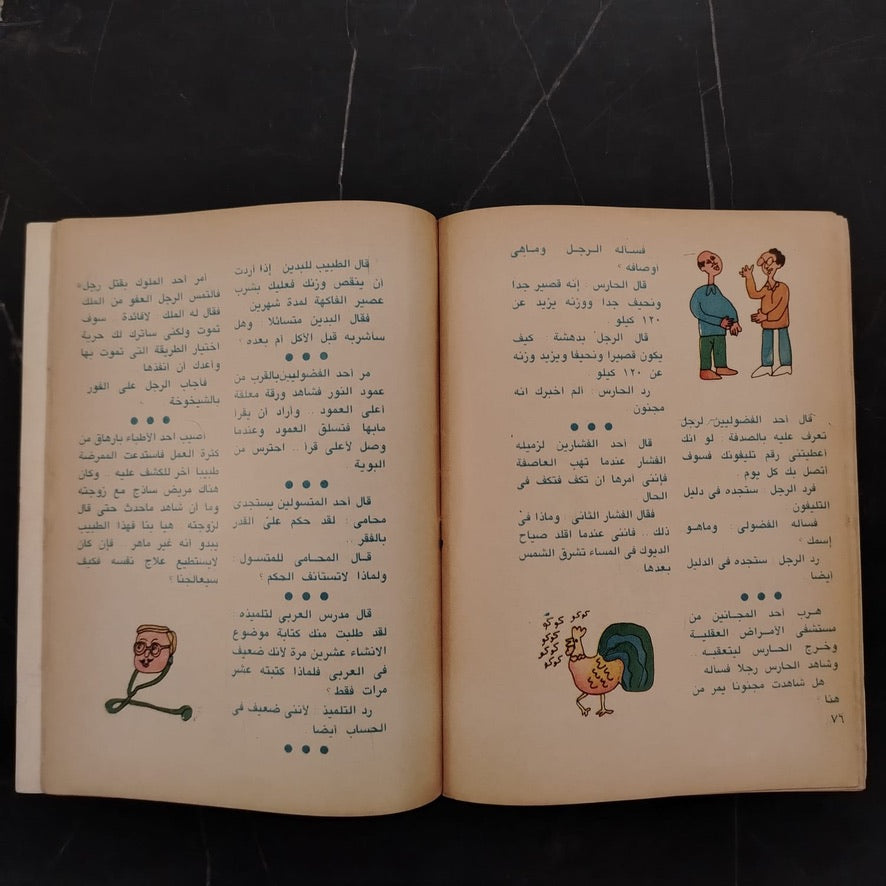 قال أحد الفضوليين لرجل
تعرف عليه بالصدفة : لو انك
أعطيتنى رقم تليفونك فسوف
أتصل بك كل يوم .
فرد الرجل : ستجده فى دليل
التليفون .
فسأله الفضولى : وماهو
إسمك ؟
رد الرجل : ستجده فى الدليل
أيضا .
هرب أحد المجانين من
مستشفى الأمراض العقلية
وخرج الحارس ليتعقبه ..
وشاهد الحارس رجلا فسأله
هل شاهدت مجنونا يمر من
هنا ؟
٧٦
فسأله الرجل وماهى
أوصافه ؟
قال الحارس : إنه قصير جدا
ونحيف جدا ووزنه يزيد عن
١٢٠ كيلو .
قال الرجل بدهشة : كيف
يكون قصيرا ونحيفا ويزيد وزنه
عن ١٢٠ كيلو .
رد الحارس : ألم اخبرك انه
مجنون
قال أحد الفشارين لزميله
الفشار عندما تهب العاصفة
فإننى أمرها ان تكف فتكف فى
الحال
فقال الفشار الثانى : وماذا فى
ذلك .. فاننى عندما اقلد صياح
الديوك فى المساء تشرق الشمس
بعدها
كوكو كوكو
كوكو
كوكو
كوكو
كوكو
قال الطبيب للبدين إذا أردت
أن ينقص وزنك فعليك بشرب
عصير الفاكهة لمدة شهرين
فقال البدين متسائلا : وهل
ساشربه قبل الأكل أم بعده ؟
مر أحد الفضوليين بالقرب من
عمود النور فشاهد ورقة معلقة
أعلى العمود .. وأراد أن يقرأ
مابها فتسلق العمود وعندما
وصل لأعلى قرأ .. احترس من
البوية .
قال أحد المتسولين يستجدى
محامى : لقد حكم على القدر
بالفقر ..
قال المحامى للمتسول :
ولماذا لاتستأنف الحكم ؟
قال مدرس العربى لتلميذه :
لقد طلبت منك كتابة موضوع
الانشاء عشرين مرة لأنك ضعيف
فى العربى فلماذا كتبته عشر
مرات فقط ؟
رد التلميذ : لأننى ضعيف فى
الحساب أيضا .
أمر أحد الملوك بقتل رجل
فالتمس الرجل العفو من الملك
فقال له الملك : لافائدة .. سوف
تموت ولكنى سأترك لك حرية
اختيار الطريقة التى تموت بها
وأعدك أن أنفذها
فأجاب الرجل على الفور
بالشيخوخة
أصيب أحد الأطباء بإرهاق من
كثرة العمل فاستدعت الممرضة
طبيبا آخر للكشف عليه .. وكان
هناك مريض ساذج مع زوجته
وما أن شاهد ماحدث حتى قال
لزوجته هيا بنا فهذا الطبيب
يبدو أنه غير ماهر .. فإن كان
لايستطيع علاج نفسه فكيف
سيعالجنا ؟